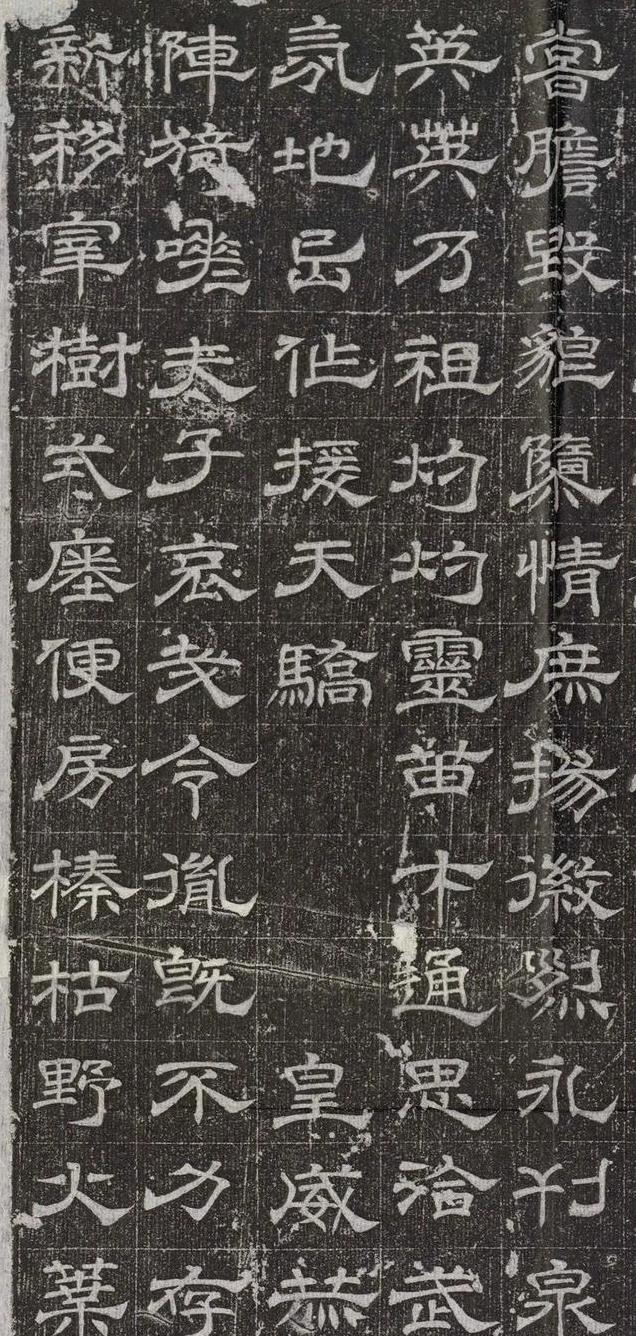 嘗膽毀貌隳情庶揚徽烈永刊泉
英英乃祖灼灼靈苗才通思洽武
氛地邑
援天驕 皇威恭
陣猗嗟夫子哀哉令胤既不力存
新移宰樹式座便房榛枯野火葉